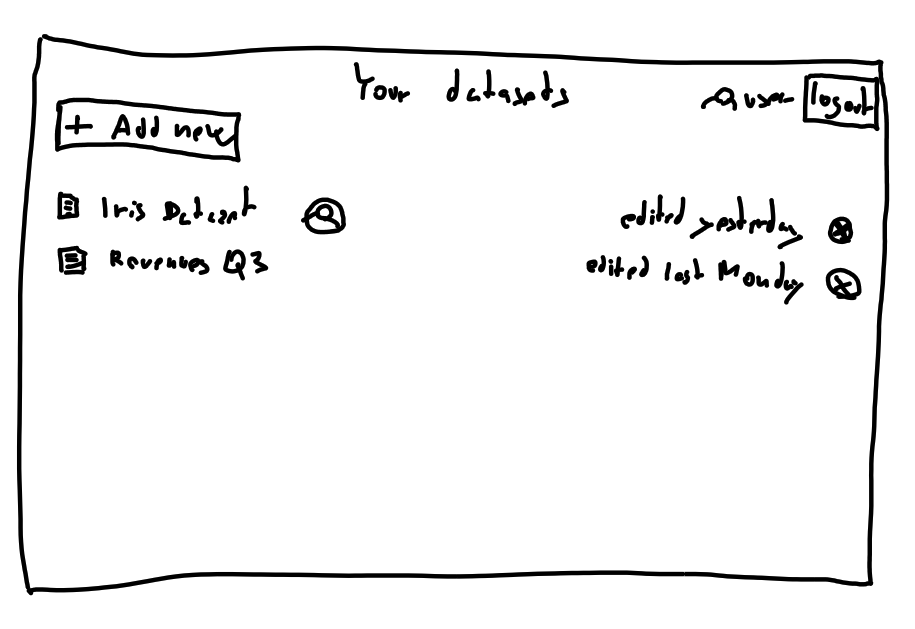 Your datasets
user logout
+ Add new
Iris Dataset edited yesterday
Revenues Q3 edited last Monday